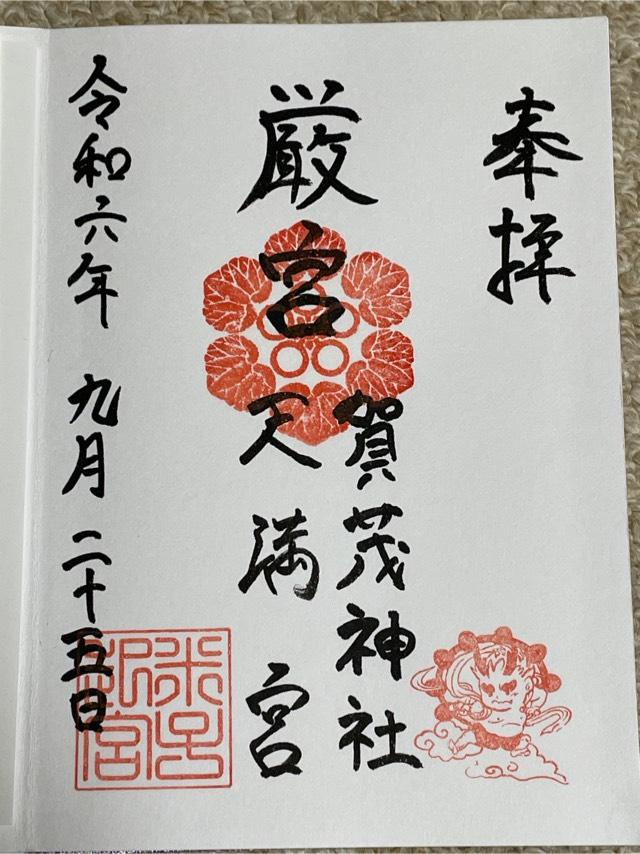 奉拝
厳宮
賀茂神社
天満宮
令和六年 九月 二十五日